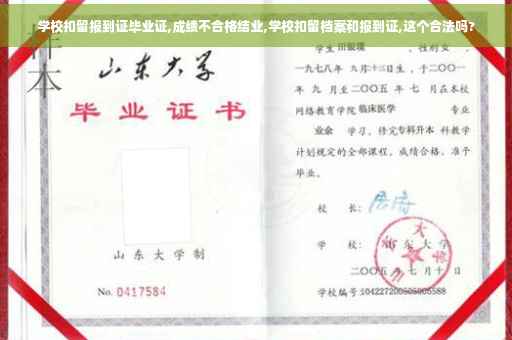 学校扣留报到证毕业证,成绩不合格结业,学校扣留档案和报到证,这个合法吗?
样本
山东大学
毕业证书
山东大学制
No. 0417584
学生 田银瑞 ,性别女 ,
一九七八年 九月十二日生,于二〇〇一
年 九 月至二〇〇五 年 七 月在本校
网络教育学院 临床医学 专业
业余 学习,修完专科升本 科教学
计划规定的全部课程,成绩合格,准予
毕业。
校 长:
学 校: 山东大学
二〇〇五 年 七 月 十 日
学校编号: